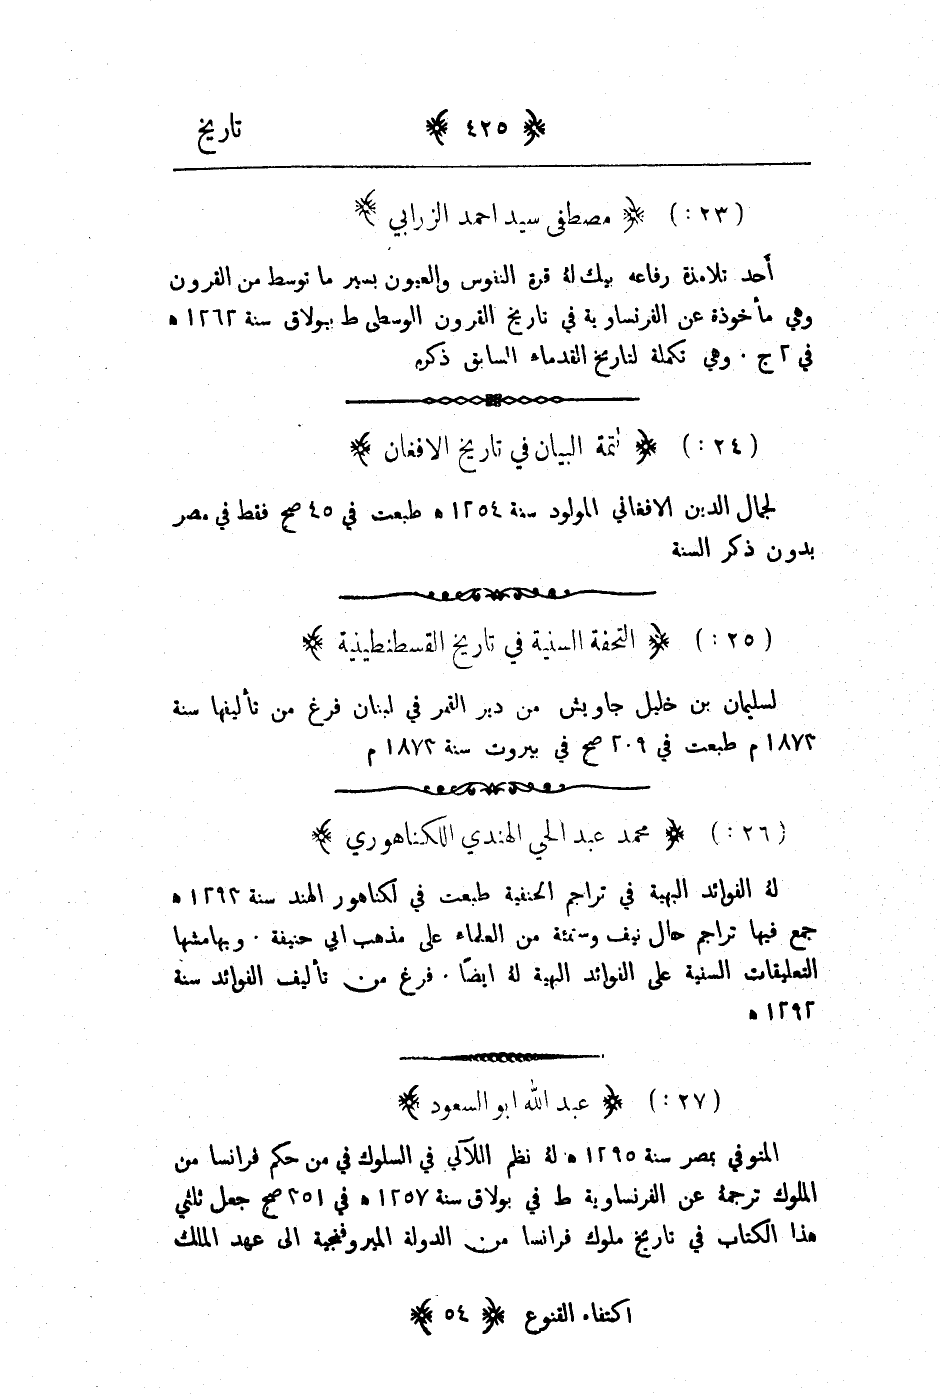 تاريخ ﴿ ٤٢٥ ﴾
(٢٣ :) ﴿ مصطفى سيد احمد الزرابي ﴾
أحد تلامذة رفاعه بيك لهُ قرة النفوس والعيون بسير ما توسط من القرون
وهي مأخوذة عن الفرنساوية في تاريخ القرون الوسطى ط ببولاق سنة ١٢٦٢ ه
في ٢ ج ٠ وهي تكملة لتاريخ القدماء السابق ذكره
(٢٤ :) ﴿ تتمة البيان في تاريخ الافغان ﴾
لجمال الدين الافغاني المولود سنة ١٢٥٤ ه طبعت في ٤٥ صح فقط في مصر
بدون ذكر السنة
(٢٥ :) ﴿ التحفة السنية في تاريخ القسطنطينية ﴾
لسليمان بن خليل جاويش من دير القمر في لبنان فرغ من تأليفها سنة
١٨٧٣ م طبعت في ٢٠٩ صح في بيروت سنة ١٨٧٣ م
(٢٦ :) ﴿ محمد عبد الحي الهندي اللكناهوري ﴾
لهُ الفوائد البهية في تراجم الحنفية طبعت في لكناهور الهند سنة ١٢٩٣ ه
جمع فيها تراجم حال نيف وستمئة من العلماء على مذهب ابي حنيفة ٠ وبهامشها
التعليقات السنية على الفوائد البهية لهُ ايضًا ٠ فرغ من تأليف الفوائد سنة
١٢٩٢ ه
(٢٧ :) ﴿ عبد الله ابو السعود ﴾
المتوفي بمصر سنة ١٢٩٥ ه لهُ نظم اللآلي في السلوك في من حكم فرانسا من
الملوك ترجمهُ عن الفرنساوية ط في بولاق سنة ١٢٥٧ ه في ٢٥١ صح جعل ثلثي
هذا الكتاب في تاريخ ملوك فرانسا من الدولة الميروفنجية الى عهد الملك
اكتفاء القنوع ﴿ ٥٤ ﴾